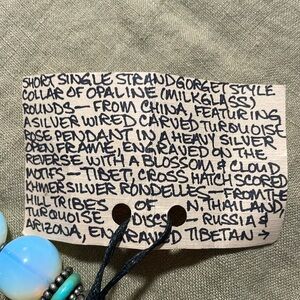 SHORT SINGLE STRAND GORGET STYLE
COLLAR OF OPALINE (MILKGLASS)
ROUNDS — FROM CHINA, FEATURING
A SILVER WIRED CARVED TURQUOISE
ROSE PENDANT IN A HEAVY SILVER
OPEN FRAME, ENGRAVED ON THE
REVERSE WITH A BLOSSOM & CLOUD
MOTIFS — TIBET; CROSS HATCH SCORED
KHMER SILVER RONDELLES — FROM THE
HILL TRIBES OF N THAILAND,
TURQUOISE DISCS — RUSSIA &
ARIZONA, ENGRAVED TIBETAN →